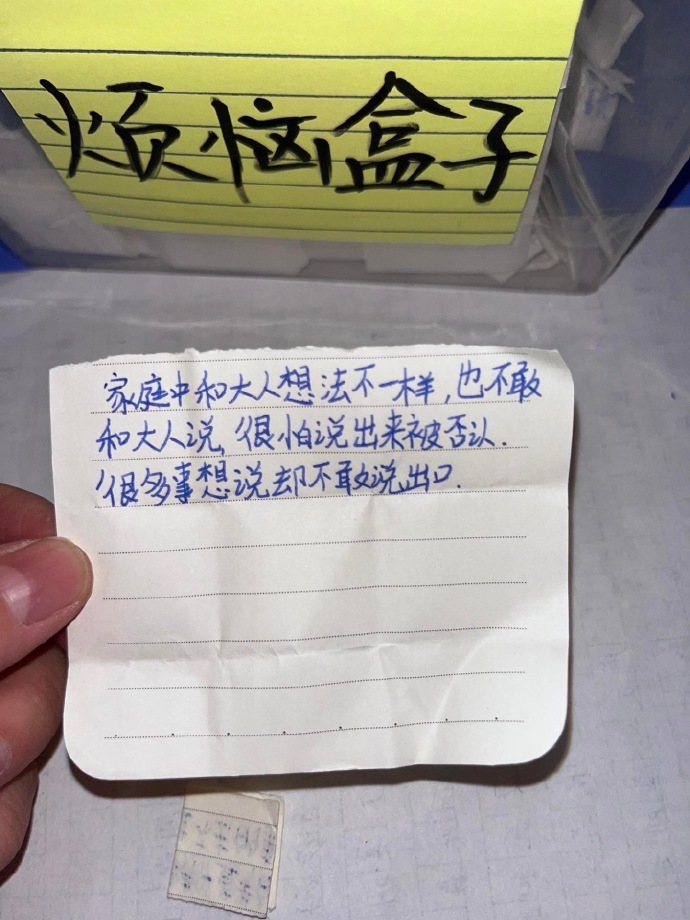 烦恼盒子
家庭中和大人想法不一样,也不敢
和大人说,很怕说出来被否认.
很多事想说却不敢说出口.